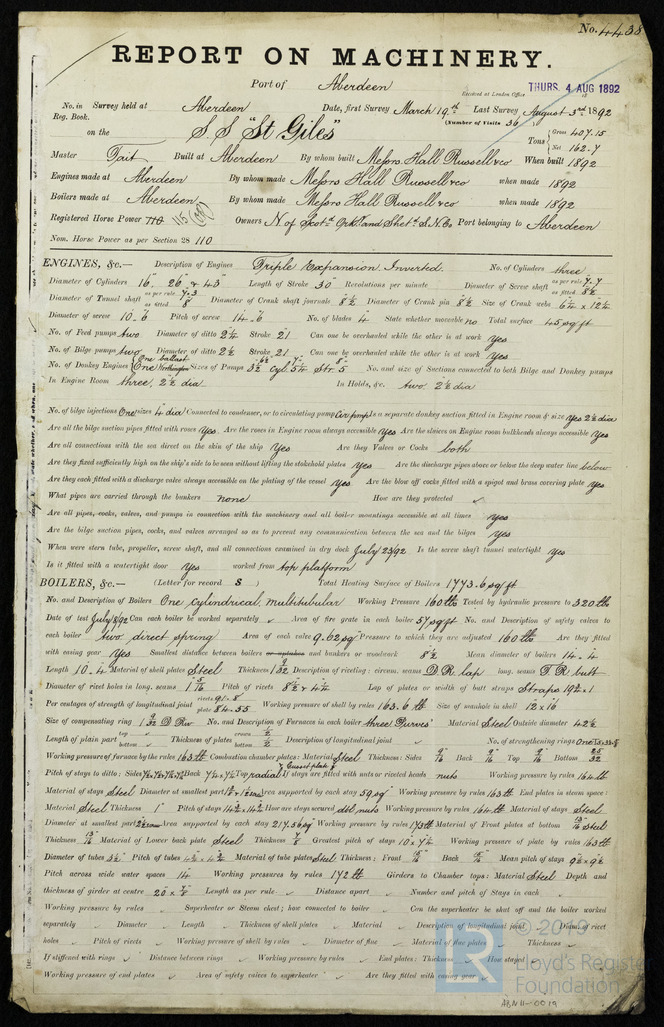 No. 4438
REPORT ON MACHINERY.
Port of Aberdeen
Received at London Office THURS. 4 AUG 1892
No. in Survey held at Aberdeen Date, first Survey March 19th Last Survey August 3rd 1892
Reg. Book. (Number of Visits 36)
on the S.S "St Giles" Tons Gross 407.15 Net 162.7
Master Tait Built at Aberdeen By whom built Messrs Hall Russell & co When built 1892
Engines made at Aberdeen By whom made Messrs Hall Russell & co when made 1892
Boilers made at Aberdeen By whom made Messrs Hall Russell & co when made 1892
Registered Horse Power 110 115 Owners N. of Scotd Orky and Shetd S. N. Co Port belonging to Aberdeen
Nom. Horse Power as per Section 28 110
ENGINES, &c.— Description of Engines Triple Expansion, Inverted. No. of Cylinders three
Diameter of Cylinders 16, 26 & 43 Length of Stroke 30 Revolutions per minute Diameter of Screw shaft as per rule 7.7 as fitted 8½
Diameter of Tunnel shaft as per rule 7.3 as fitted 8 Diameter of Crank shaft journals 8½ Diameter of Crank pin 8½ Size of Crank webs 6¼ x 12½
Diameter of screw 10-6 Pitch of screw 14-6 No. of blades 4 State whether moveable no Total surface 45 sq ft
No. of Feed pumps two Diameter of ditto 2¼ Stroke 21 Can one be overhauled while the other is at work yes
No. of Bilge pumps two Diameter of ditto 2½ Stroke 21 Can one be overhauled while the other is at work yes
No. of Donkey Engines One ballast One Worthington Sizes of Pumps No. and size of Suctions connected to both Bilge and Donkey pumps
In Engine Room three, 2½ dia In Holds, &c. two 2½ dia
No. of bilge injections One sizes 4 dia Connected to condenser, or to circulating pump Cir pump Is a separate donkey suction fitted in Engine room & size yes 2½ dia
Are all the bilge suction pipes fitted with roses yes Are the roses in Engine room always accessible yes Are the sluices on Engine room bulkheads always accessible yes
Are all connections with the sea direct on the skin of the ship yes Are they Valves or Cocks both
Are they fixed sufficiently high on the ship's side to be seen without lifting the stokehold plates yes Are the discharge pipes above or below the deep water line below
Are they each fitted with a discharge valve always accessible on the plating of the vessel yes Are the blow off cocks fitted with a spigot and brass covering plate yes
What pipes are carried through the bunkers none How are they protected ✓
Are all pipes, cocks, valves, and pumps in connection with the machinery and all boiler mountings accessible at all times yes
Are the bilge suction pipes, cocks, and valves arranged so as to prevent any communication between the sea and the bilges yes
When were stern tube, propeller, screw shaft, and all connections examined in dry dock July 23/92 Is the screw shaft tunnel watertight yes
Is it fitted with a watertight door yes worked from top platform
BOILERS, &c.— (Letter for record S) Total Heating Surface of Boilers 1773.6 sq ft
No. and Description of Boilers One cylindrical, multitubular Working Pressure 160 lb Tested by hydraulic pressure to 320 lb
Date of test July 8/92 Can each boiler be worked separately ✓ Area of fire grate in each boiler 57 sq ft No. and Description of safety valves to
each boiler two direct spring Area of each valve 9.62 sq" Pressure to which they are adjusted 160 lb Are they fitted
with easing gear yes Smallest distance between boilers or uptakes and bunkers or woodwork 8½ Mean diameter of boilers 14-4
Length 10-4 Material of shell plates Steel Thickness 1 9/32 Description of riveting: circum. seams D.R. lap long. seams T.R butt
Diameter of rivet holes in long. seams 1 5/16 Pitch of rivets 8½ & 4¼ Lap of plates or width of butt straps Straps 19½ x 1
Per centages of strength of longitudinal joint rivets 91.8 plate 84.55 Working pressure of shell by rules 163.6 lb Size of manhole in shell 12 x 16
Size of compensating ring 1 9/32 D Riv No. and Description of Furnaces in each boiler three Purves' Material Steel Outside diameter 42½
Length of plain part top ✓ bottom ✓ Thickness of plates crown ½ bottom ½ Description of longitudinal joint ✓ No. of strengthening rings
Working pressure of furnace by the rules 163 lb Combustion chamber plates: Material Steel Thickness: Sides 9/16 Back 9/16 Top 9/16 Bottom 25/32
Pitch of stays to ditto: Sides Back 7¼ x 7½ Top radial & Gusset plate If stays are fitted with nuts or riveted heads nuts Working pressure by rules 164 lb
Material of stays Steel Diameter at smallest part Area supported by each stay 59 sq" Working pressure by rules 163 lb End plates in steam space:
Material Steel Thickness 1" Pitch of stays 14½ x 14½ How are stays secured dbl nuts Working pressure by rules 164 lb Material of stays Steel
Diameter at smallest part Area supported by each stay 217.56 sq" Working pressure by rules 173 lb Material of Front plates at bottom Steel
Thickness 13/16 Material of Lower back plate Steel Thickness 7/8 Greatest pitch of stays 10 x 7¼ Working pressure of plate by rules 163 lb
Diameter of tubes 3½ Pitch of tubes 4¾ x 4¾ Material of tube plates Steel Thickness: Front 15/16 Back Mean pitch of stays 9½ x 9½
Pitch across wide water spaces 14 Working pressures by rules 172 lb Girders to Chamber tops: Material Steel Depth and
thickness of girder at centre Length as per rule ✓ Distance apart ✓ Number and pitch of Stays in each ✓
Working pressure by rules ✓ Superheater or Steam chest; how connected to boiler ✓ Can the superheater be shut off and the boiler worked
separately ✓ Diameter ✓ Length ✓ Thickness of shell plates ✓ Material ✓ Description of longitudinal joint ✓ Diam. of rivet
holes ✓ Pitch of rivets ✓ Working pressure of shell by rules ✓ Diameter of flue ✓ Material of flue plates ✓ Thickness ✓
If stiffened with rings ✓ Distance between rings ✓ Working pressure by rules ✓ End plates: Thickness ✓ How stayed ✓
Working pressure of end plates ✓ Area of safety valves to superheater ✓ Are they fitted with easing gear ✓
© 2019
LR
Lloyd's Register
Foundation
ABN11-0019